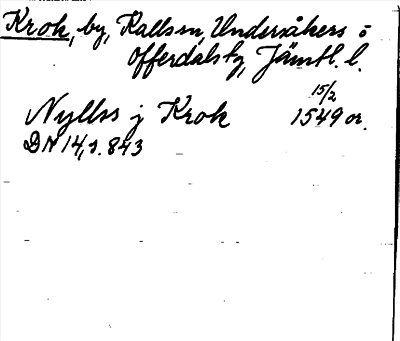 Krok, by, Kallsn, Undersåkers o
Offerdals tg, Jämtl. l.
15/2
Nylls j Krok 1549 or.
DN 14, s. 843